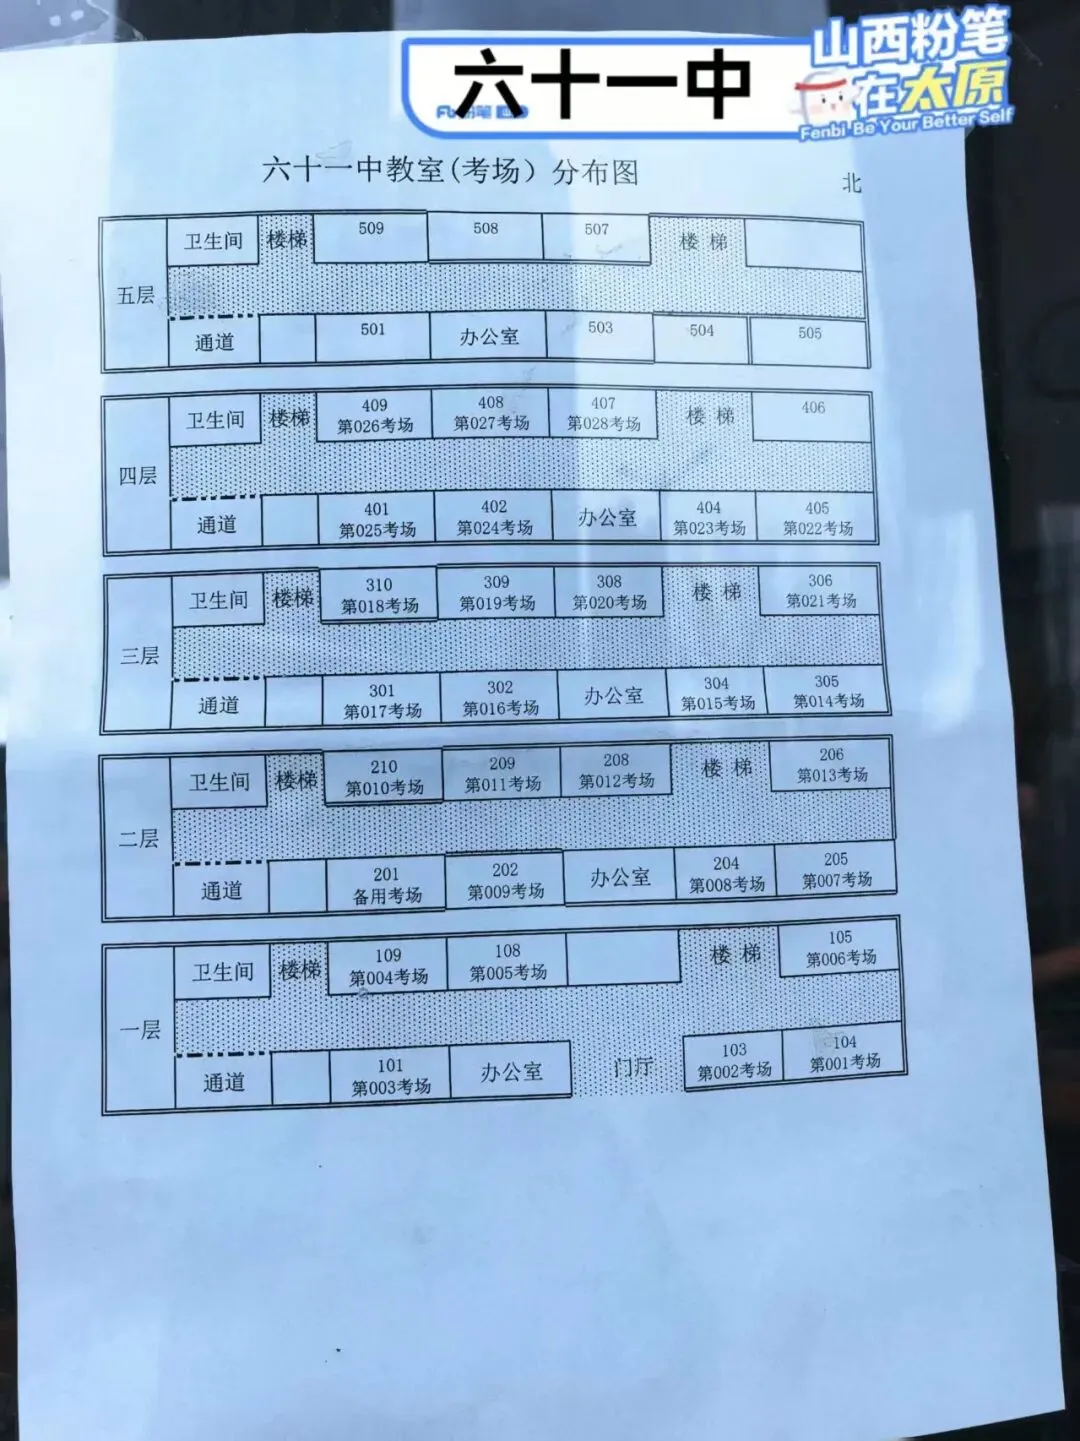 六十一中
山西粉笔
在太原
Fenbi Be Your Better Self
六十一中教室(考场)分布图
北
五层
卫生间 楼梯 509 508 507 楼梯
通道 501 办公室 503 504 505
四层
卫生间 楼梯 409 408 407 楼梯 406
第026考场 第027考场 第028考场
通道 401 402 办公室 404 405
第025考场 第024考场 第023考场 第022考场
三层
卫生间 楼梯 310 309 308 楼梯 306
第018考场 第019考场 第020考场 第021考场
通道 301 302 办公室 304 305
第017考场 第016考场 第015考场 第014考场
二层
卫生间 楼梯 210 209 208 楼梯 206
第010考场 第011考场 第012考场 第013考场
通道 201 202 办公室 204 205
备用考场 第009考场 第008考场 第007考场
一层
卫生间 楼梯 109 108 楼梯 105
第004考场 第005考场 第006考场
通道 101 办公室 门厅 103 104
第003考场 第002考场 第001考场